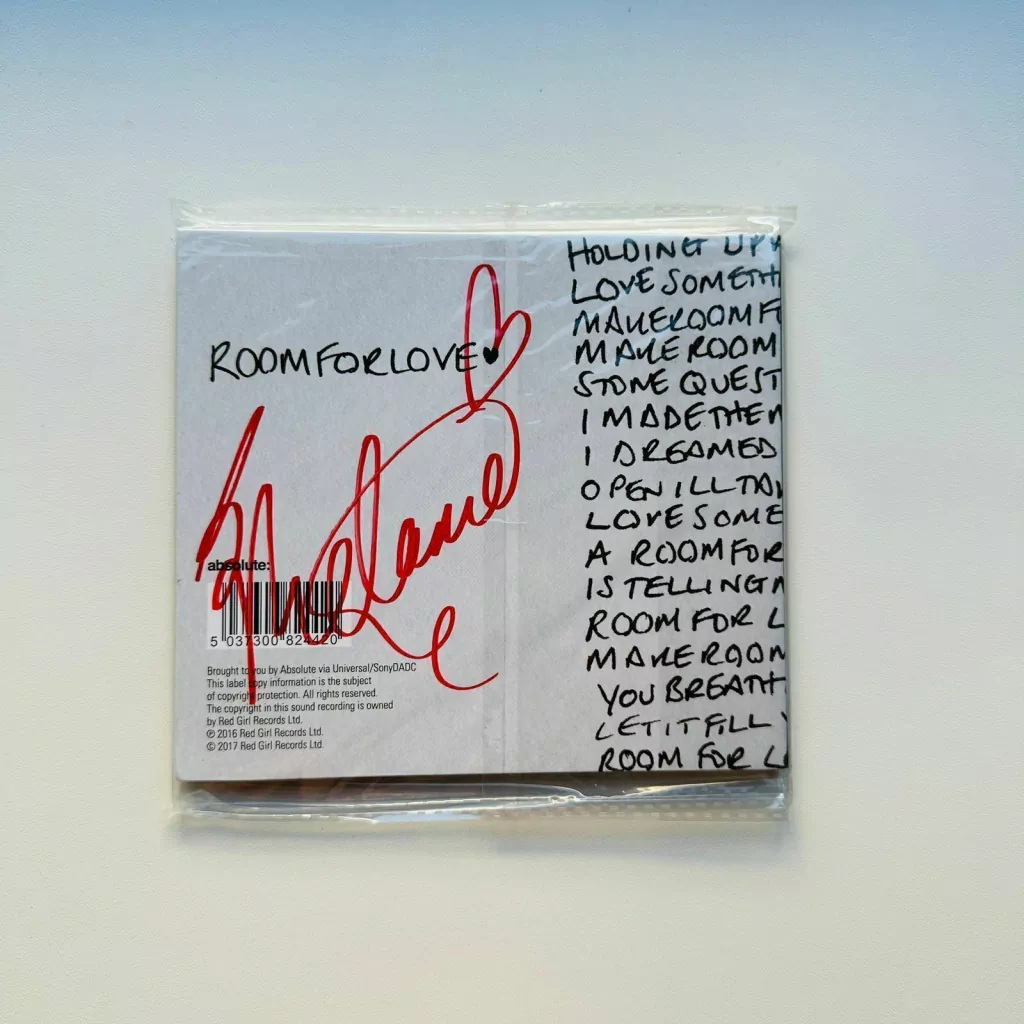 ROOMFORLOVE♥
Melanie C
absolute:
5 037300 824420
Brought to you by Absolute via Universal/SonyDADC
This label copy information is the subject
of copyright protection. All rights reserved.
The copyright in this sound recording is owned
by Red Girl Records Ltd.
℗ 2016 Red Girl Records Ltd.
© 2017 Red Girl Records Ltd.
HOLDING UP
LOVE SOMETH
MAKE ROOM F
MAKE ROOM
STONE QUEST
I MADE THE
I DREAMED
OPEN ILL TA
LOVE SOME
A ROOM FOR
IS TELLING
ROOM FOR L
MAKE ROOM
YOU BREATH
LET IT FILL
ROOM FOR L